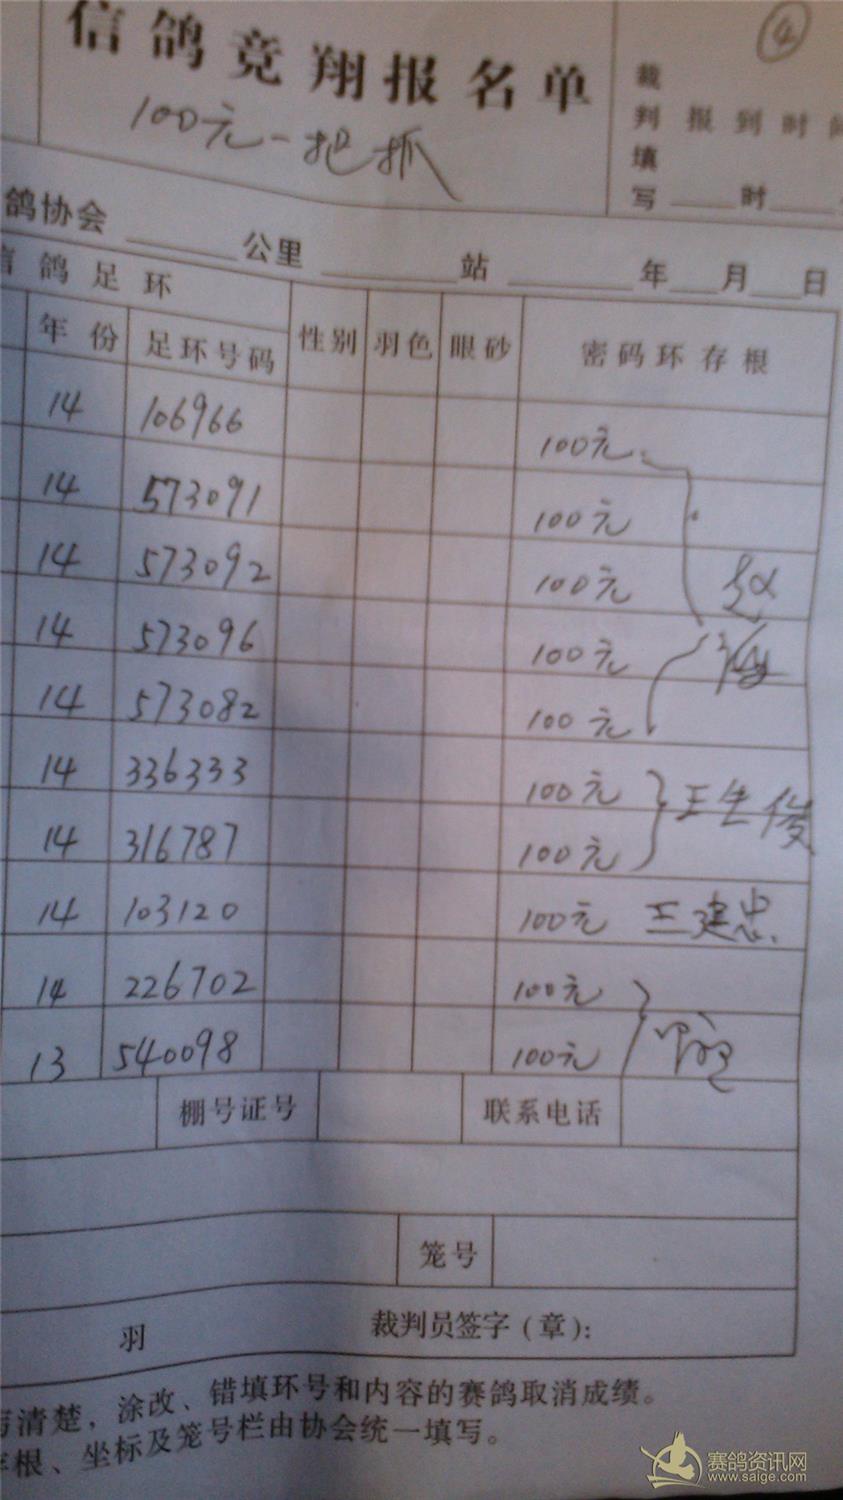 ④
信鸽竞翔报名单
100元一把抓
裁
判 报到时
填
写 ____时____
鸽协会 ____公里 ____站 ____年__月__日
鸽足环
年份 足环号码 性别 羽色 眼砂 密码环存根
14 106966 100元
14 573091 100元
14 573092 100元 赵
14 573096 100元 海
14 573082 100元
14 336333 100元
14 316787 100元 王生俊
14 103120 100元 王建忠
14 226702 100元
13 540098 100元
棚号证号 联系电话
笼号
羽 裁判员签字(章):
清楚，涂改、错填环号和内容的赛鸽取消成绩。
根、坐标及笼号栏由协会统一填写。
赛鸽资讯网
www.saige.com